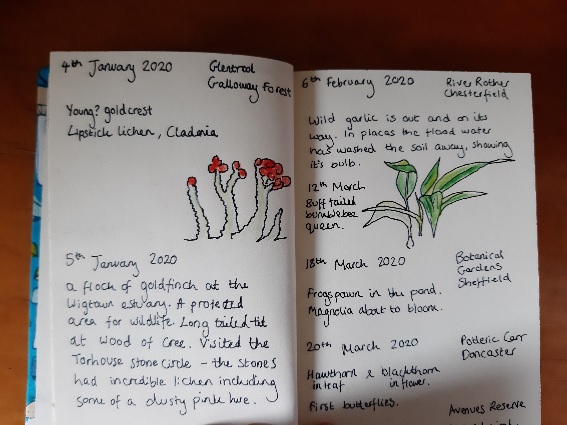 4th January 2020 Glentrool
Galloway Forest
Young? goldcrest
Lipstick lichen, Cladonia
5th January 2020
a flock of goldfinch at the
Wigtown estuary. A protected
area for wildlife. Long tailed-tit
at Wood of Cree. Visited the
Torhouse stone circle - the stones
had incredible lichen including
some of a dusty pink hue.
6th February 2020 River Rother
Chesterfield
Wild garlic is out and on its
way. In places the flood water
has washed the soil away, showing
it's bulb.
12th March
Buff tailed
bumblebee
queen.
18th March 2020 Botanical
Gardens
Sheffield
Frogspawn in the pond.
Magnolia about to bloom.
20th March 2020 Potteric Carr
Doncaster
Hawthorn & blackthorn
in leaf in flower.
First butterflies.
Avenues Reserve